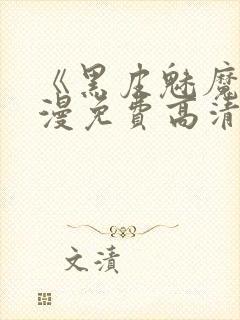 《黑皮魅魔
漫免费高清
文渍